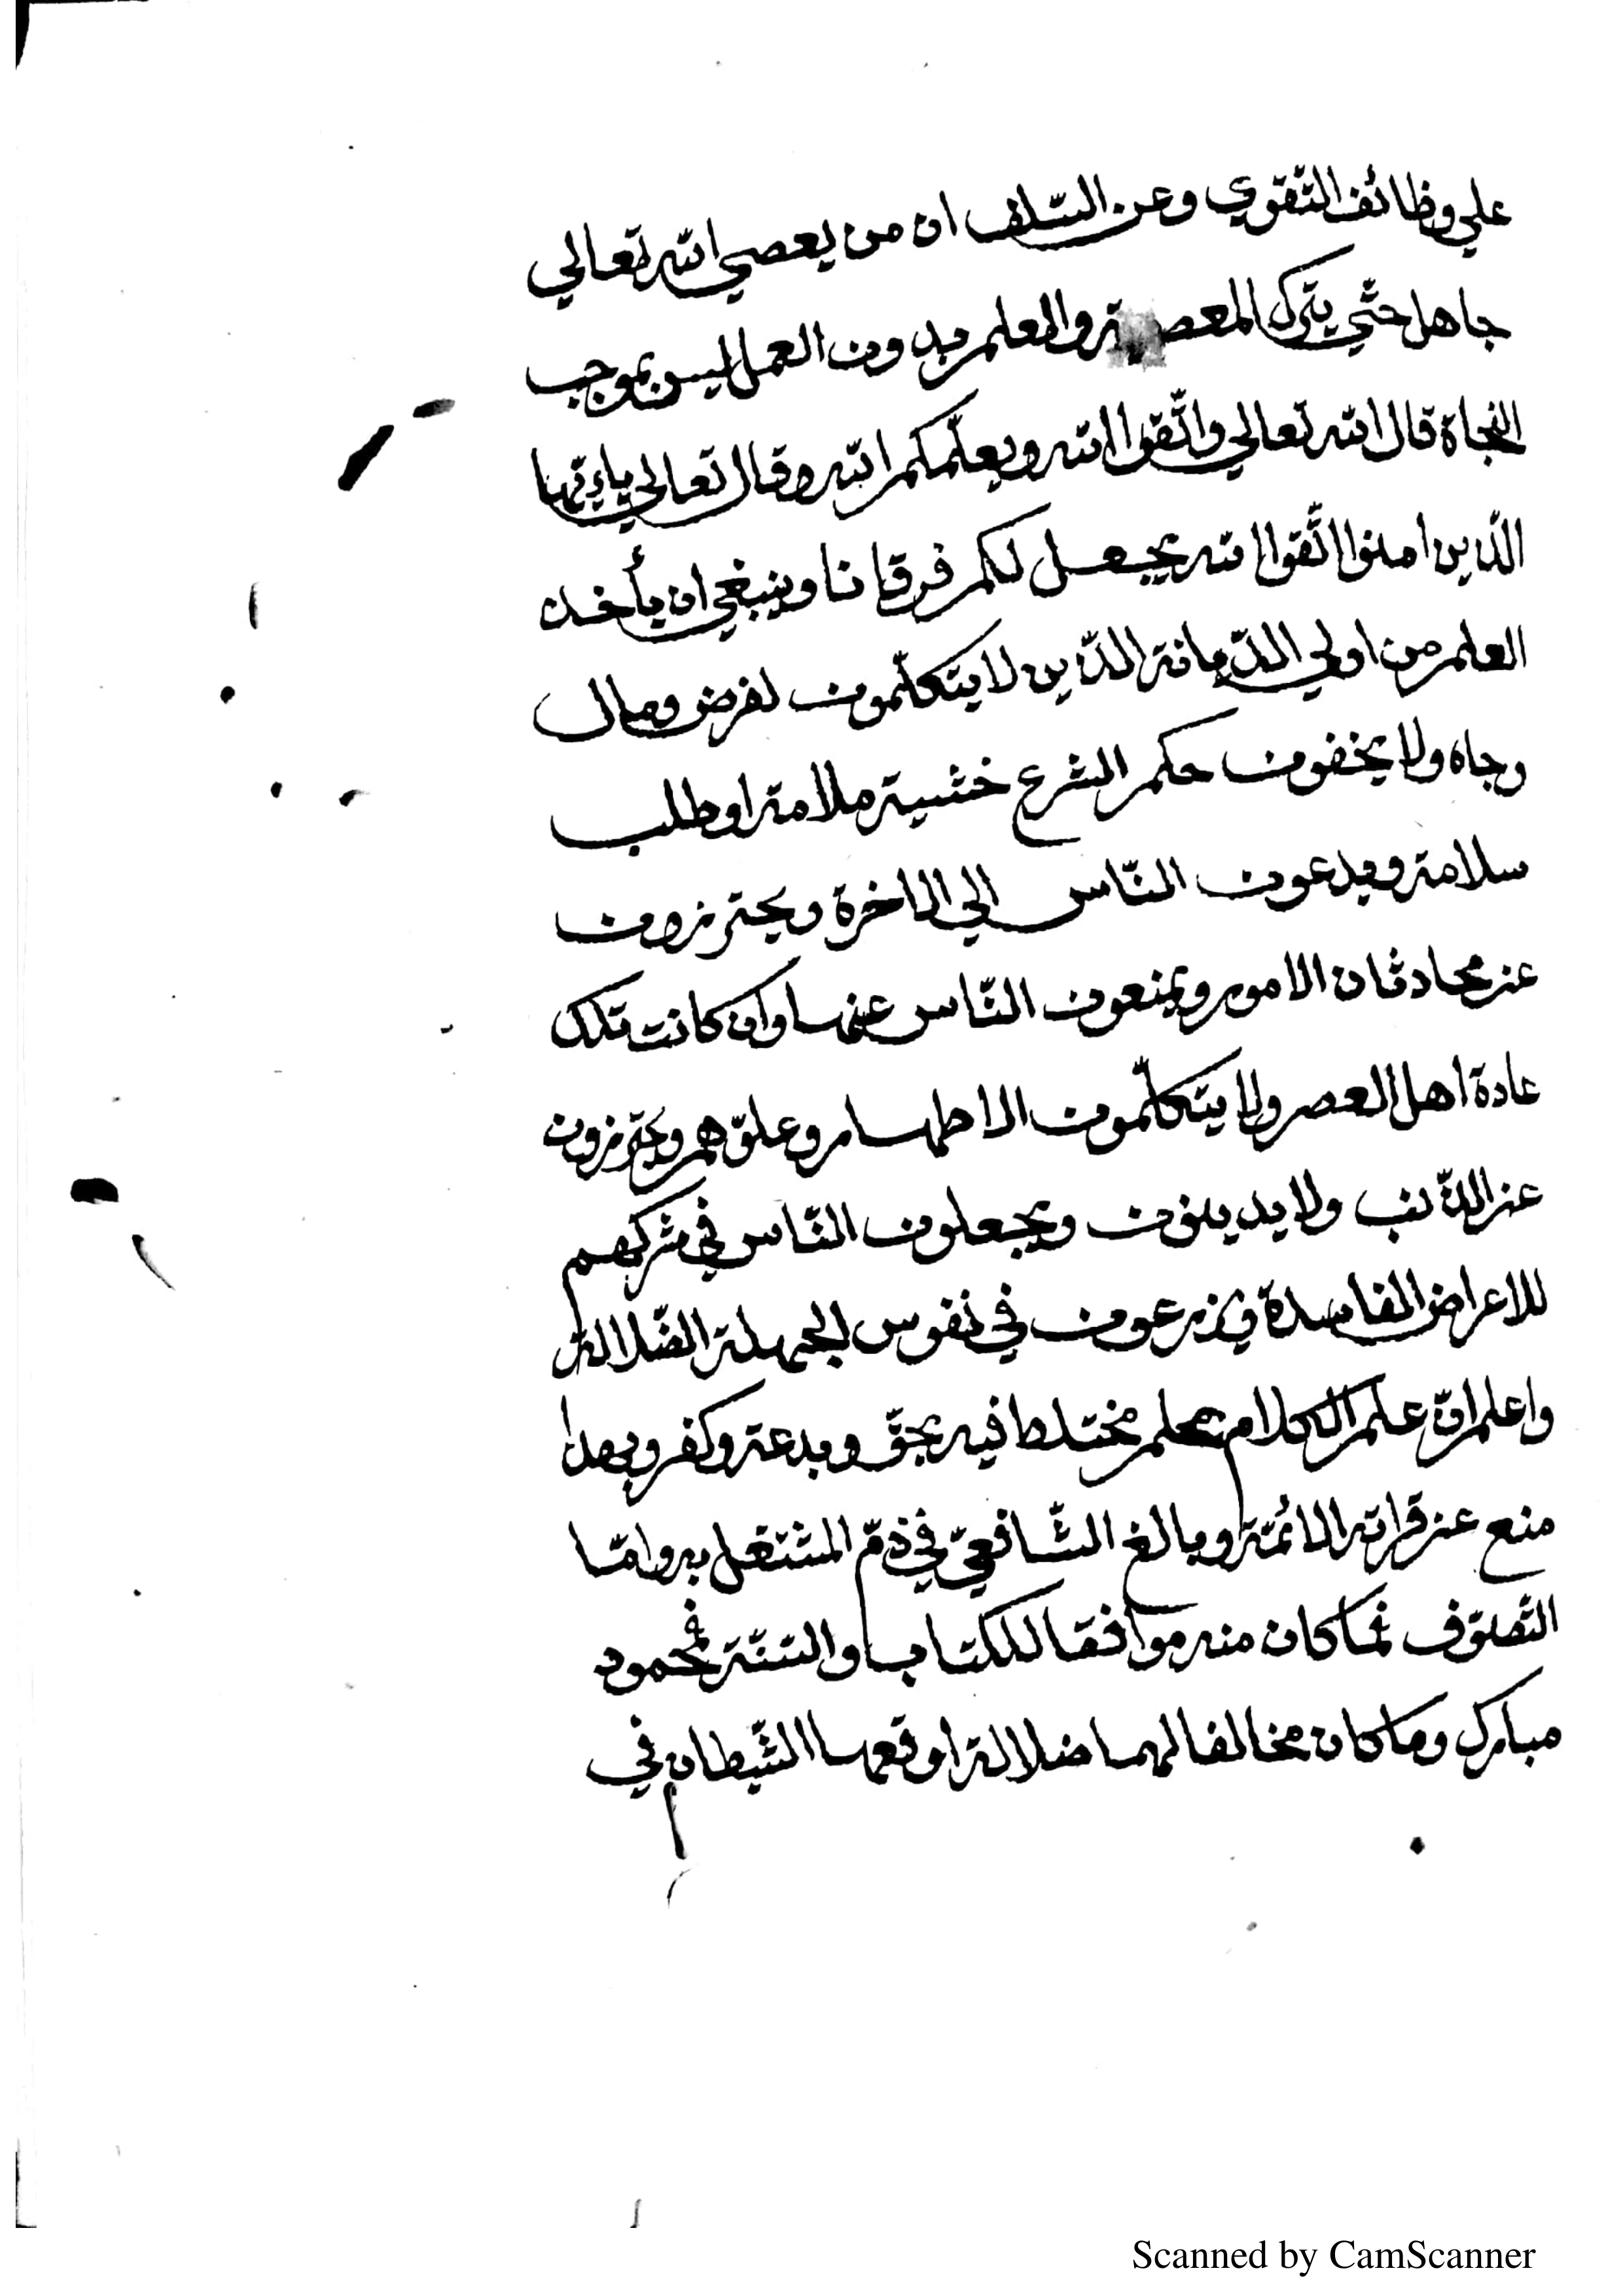 علي وظائف التّقوي وعن السّلف ان من يعصي الله تعالي
جاهل حتّي يترك المعصية والعلم بدون العمل ليس بموجب
النجاة قال الله تعالي واتّقوا الله ويعلّمكم الله وقال تعالي يايّها
الّذين امنوا اتّقوا الله يجعل لكم فرقانا وينبغي ان يأخذ
العلم من اولي الدّيانة الّذين لا يتكلّمون لغرض ومال
وجاه ولا يخفون حكم الشرع خشية ملامة او طلب
سلامة ويدعون النّاس الي الاخرة ويحترزون
عن محادثان الامور ويمنعون النّاس عنها وان كانت تلك
عادة اهل العصر ولا يتكلّمون الا ويحترزون
عن الذّنب ولا ويجعلون النّاس في شركهم
للاعراض الفاسدة ويزرعون في نفوس الجهلة الضّلالة
واعلم انّ علم الكلام علم مختلط فيه بحقّ وبدعة وكفر وبهذا
منع عن قراته الائمّة وبالغ الشّافعيّ في ذمّ المشتغل به وامّا
التّصوّف فما كان منه موافقا للكتاب والسّنّة فمحمود
مبارك وما كان مخالفا لهما ضلالة اوقعها الشّيطان في
Scanned by CamScanner